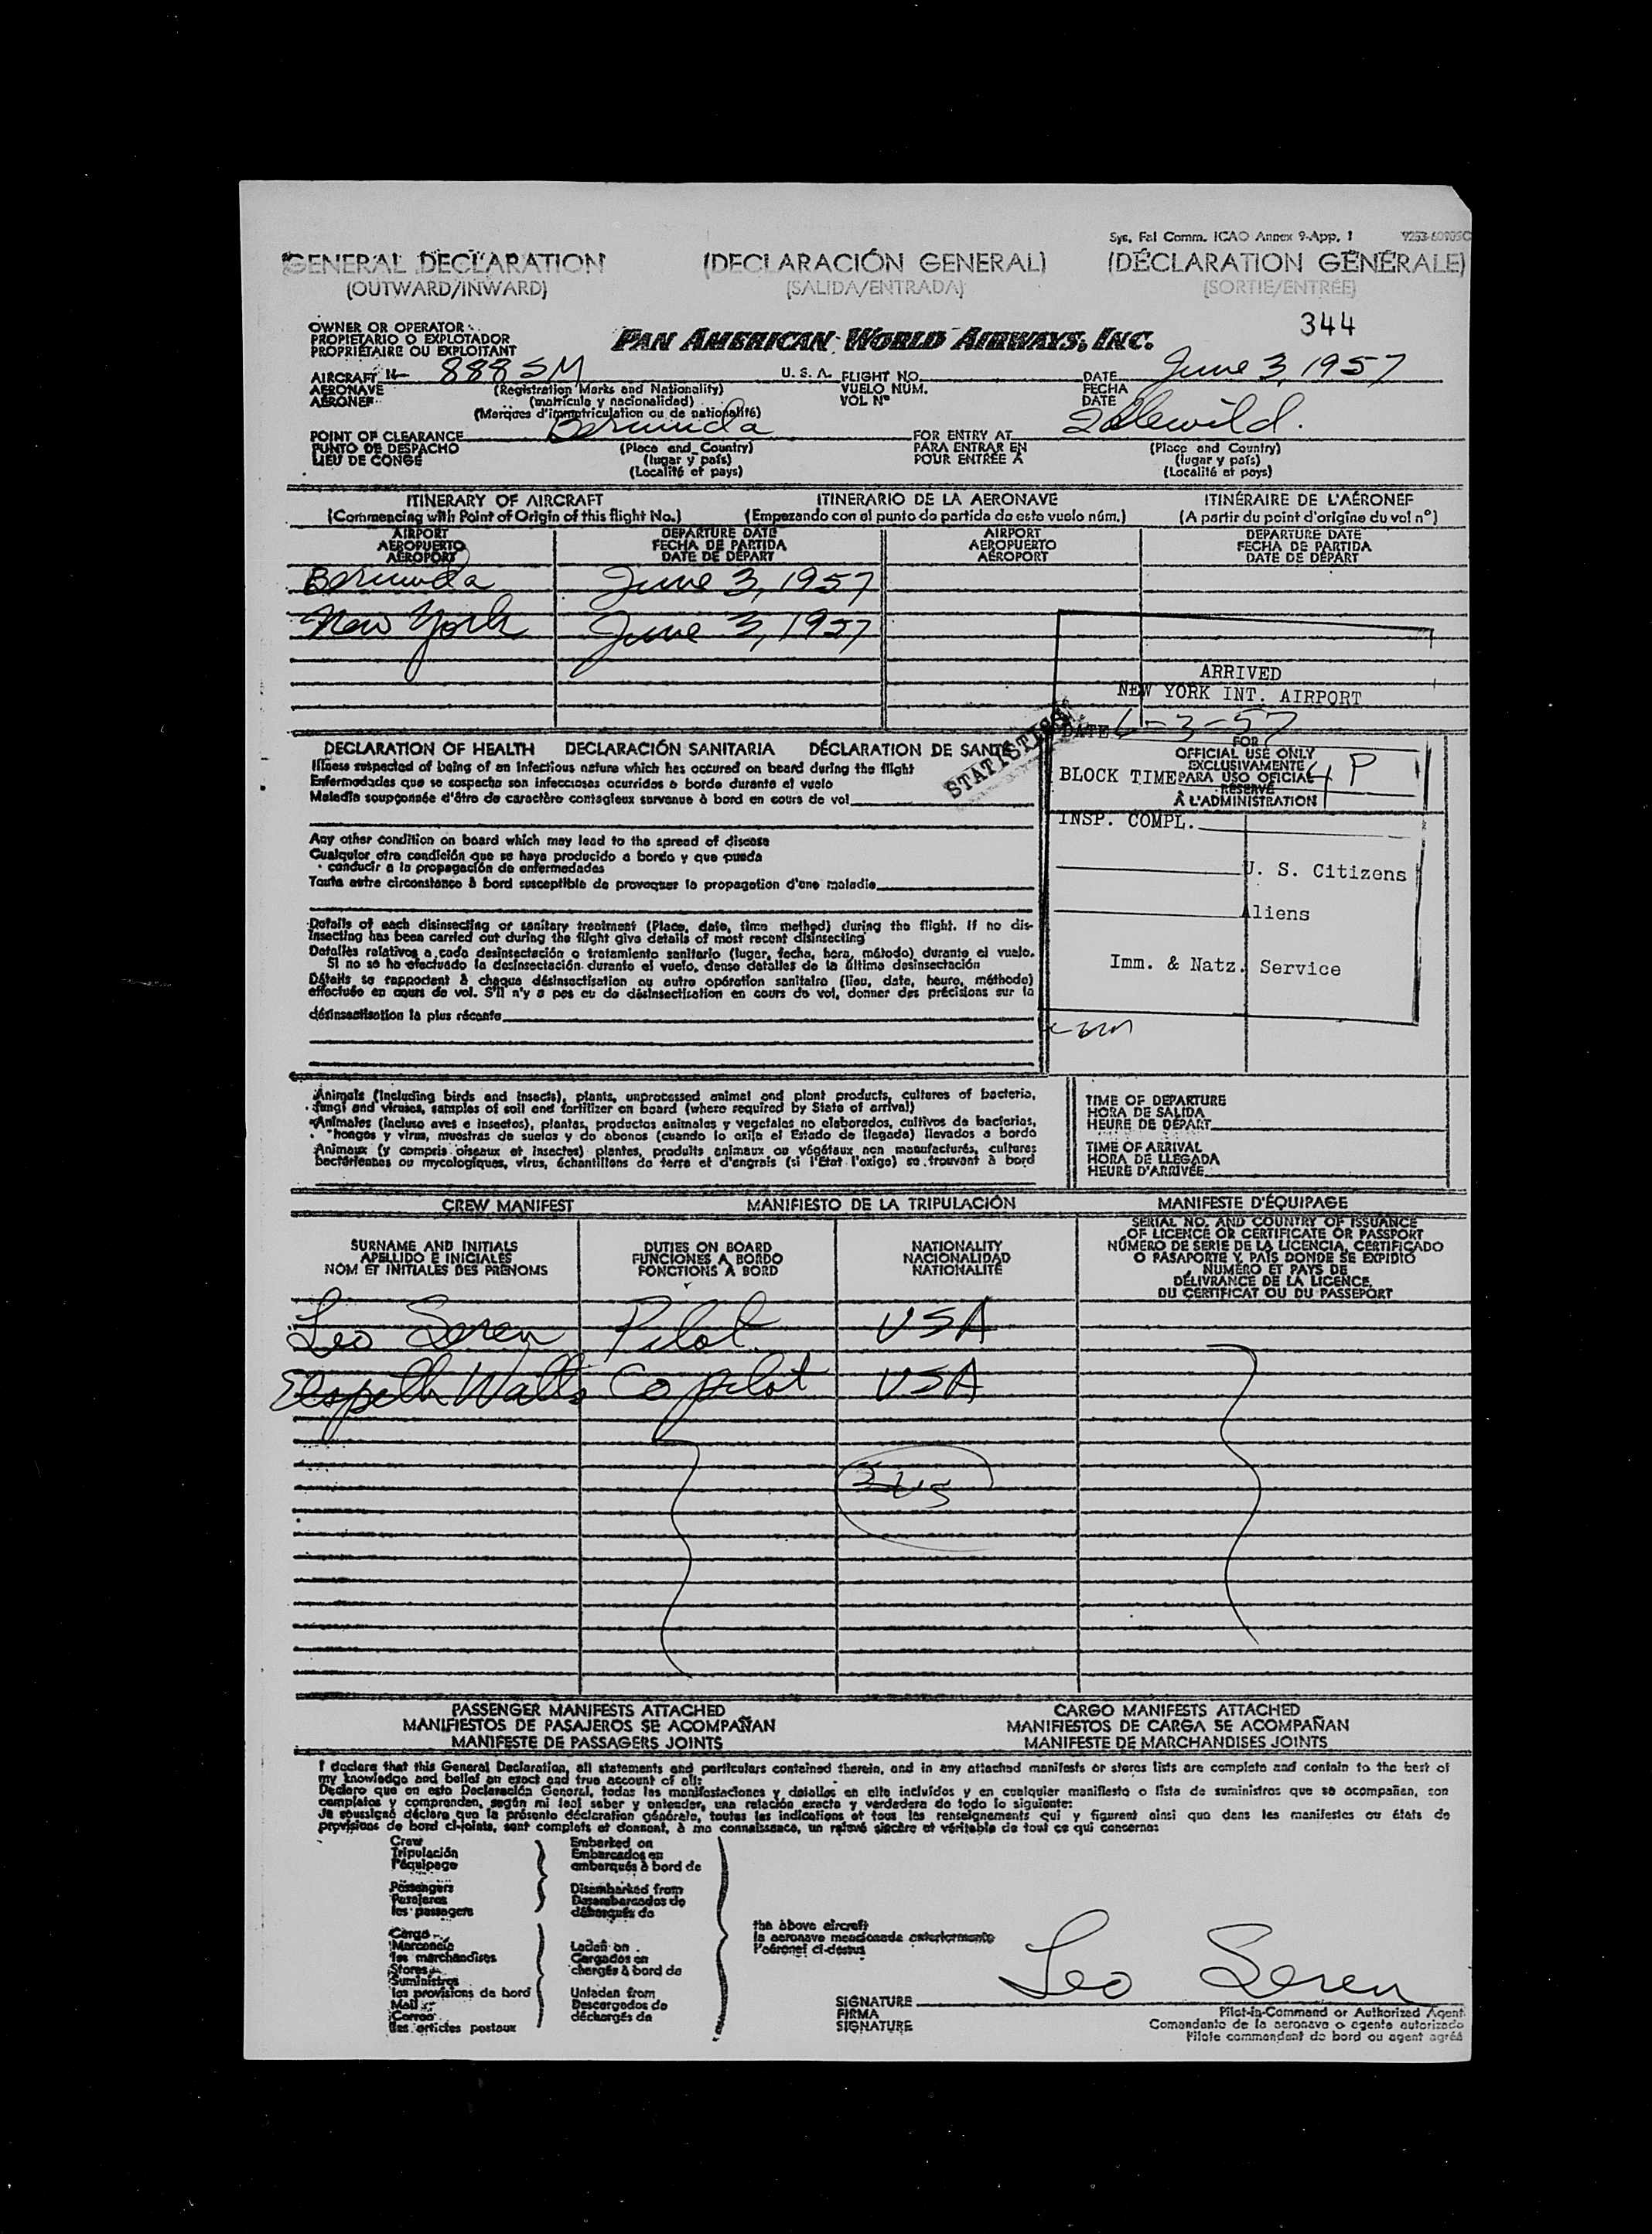 Sys. Fal Comm. ICAO Annex 9-App. 1
GENERAL DECLARATION (DECLARACIÓN GENERAL) (DÉCLARATION GÉNÉRALE)
(OUTWARD/INWARD) (SALIDA/ENTRADA) (SORTIE/ENTRÉE)
344
OWNER OR OPERATOR
PROPIETARIO O EXPLOTADOR
PROPRIÉTAIRE OU EXPLOITANT
PAN AMERICAN WORLD AIRWAYS, INC.
AIRCRAFT N- 888 SM U. S. A. FLIGHT NO. DATE June 3, 1957
AERONAVE (Registration Marks and Nationality) VUELO NÚM. FECHA
AÉRONEF (matrícula y nacionalidad) VOL Nº DATE
(Marques d'immatriculation ou de nationalité)
POINT OF CLEARANCE Bermuda FOR ENTRY AT Idlewild.
PUNTO DE DESPACHO (Place and Country) PARA ENTRAR EN (Place and Country)
LIEU DE CONGÉ (lugar y país) POUR ENTRÉE À (lugar y país)
(Localité et pays) (Localité et pays)
ITINERARY OF AIRCRAFT ITINERARIO DE LA AERONAVE ITINÉRAIRE DE L'AÉRONEF
(Commencing with Point of Origin of this flight No.) (Empezando con el punto de partida de este vuelo núm.) (A partir du point d'origine du vol nº)
AIRPORT DEPARTURE DATE AIRPORT DEPARTURE DATE
AEROPUERTO FECHA DE PARTIDA AEROPUERTO FECHA DE PARTIDA
AÉROPORT DATE DE DÉPART AÉROPORT DATE DE DÉPART
Bermuda June 3, 1957
New York June 3, 1957
ARRIVED
NEW YORK INT. AIRPORT
DATE 6-3-57
STATISTICS
DECLARATION OF HEALTH DECLARACIÓN SANITARIA DÉCLARATION DE SANTÉ
FOR
OFFICIAL USE ONLY
EXCLUSIVAMENTE
PARA USO OFICIAL
RÉSERVÉ
À L'ADMINISTRATION
BLOCK TIME 4 P
INSP. COMPL.
U. S. Citizens
Aliens
Imm. & Natz. Service
Illness suspected of being of an infectious nature which has occured on board during the flight
Enfermedades que se sospecha son infecciosas ocurridas a bordo durante el vuelo
Maladie soupçonnée d'être de caractère contagieux survenue à bord en cours de vol
Any other condition on board which may lead to the spread of disease
Cualquier otra condición que se haya producido a bordo y que pueda
conducir a la propagación de enfermedades
Toute autre circonstance à bord susceptible de provoquer la propagation d'une maladie
Details of each disinsecting or sanitary treatment (Place, date, time method) during the flight. If no dis-
insecting has been carried out during the flight give details of most recent disinsecting
Detalles relativos a cada desinsectación o tratamiento sanitario (lugar, fecha, hora, método) durante el vuelo.
Si no se ha efectuado la desinsectación durante el vuelo, dense detalles de la última desinsectación
Détails se rapportant à chaque désinsectisation ou autre opération sanitaire (lieu, date, heure, méthode)
effectuée en cours de vol. S'il n'y a pas eu de désinsectisation en cours de vol, donner des précisions sur la
désinsectisation la plus récente
Animals (including birds and insects), plants, unprocessed animal and plant products, cultures of bacteria,
fungi and viruses, samples of soil and fertilizer on board (where required by State of arrival)
Animales (incluso aves e insectos), plantas, productos animales y vegetales no elaborados, cultivos de bacterias,
hongos y virus, muestras de suelos y de abonos (cuando lo exija el Estado de llegada) llevados a bordo
Animaux (y compris oiseaux et insectes) plantes, produits animaux ou végétaux non manufacturés, cultures
bactériennes ou mycologiques, virus, échantillons de terre et d'engrais (si l'État l'exige) se trouvant à bord
TIME OF DEPARTURE
HORA DE SALIDA
HEURE DE DÉPART
TIME OF ARRIVAL
HORA DE LLEGADA
HEURE D'ARRIVÉE
CREW MANIFEST MANIFIESTO DE LA TRIPULACIÓN MANIFESTE D'ÉQUIPAGE
SURNAME AND INITIALS
APELLIDO E INICIALES
NOM ET INITIALES DES PRÉNOMS
DUTIES ON BOARD
FUNCIONES A BORDO
FONCTIONS À BORD
NATIONALITY
NACIONALIDAD
NATIONALITÉ
SERIAL NO. AND COUNTRY OF ISSUANCE
OF LICENCE OR CERTIFICATE OR PASSPORT
NÚMERO DE SERIE DE LA LICENCIA, CERTIFICADO
O PASAPORTE Y PAÍS DONDE SE EXPIDIÓ
NUMÉRO ET PAYS DE
DÉLIVRANCE DE LA LICENCE,
DU CERTIFICAT OU DU PASSEPORT
Leo Seren Pilot USA
Elspeth Watts Copilot USA
2 US
PASSENGER MANIFESTS ATTACHED CARGO MANIFESTS ATTACHED
MANIFIESTOS DE PASAJEROS SE ACOMPAÑAN MANIFIESTOS DE CARGA SE ACOMPAÑAN
MANIFESTE DE PASSAGERS JOINTS MANIFESTE DE MARCHANDISES JOINTS
I declare that this General Declaration, all statements and particulars contained therein, and in any attached manifests or stores lists are complete and contain to the best of
my knowledge and belief an exact and true account of all:
Declaro que en esta Declaración General, todas las manifestaciones y detalles en ella incluídos y en cualquier manifiesto o lista de suministros que se acompañan, son
completos y comprenden, según mi leal saber y entender, una relación exacta y verdadera de todo lo siguiente:
Je soussigné déclare que la présente déclaration générale, toutes les indications et tous les renseignements qui y figurent ainsi que dans les manifestes ou états de
provisions de bord ci-joints, sont complets et donnent, à ma connaissance, un relevé sincère et véritable de tout ce qui concerne:
Crew
Tripulación
l'équipage
Passengers
Pasajeros
les passagers
Cargo
Mercancía
les marchandises
Stores
Suministros
les provisions de bord
Mail
Correo
les articles postaux
Embarked on
Embarcados en
embarqués à bord de
Disembarked from
Desembarcados de
débarqués de
Laden on
Cargados en
chargés à bord de
Unladen from
Descargados de
déchargés de
the above aircraft
la aeronave mencionada anteriormente
l'aéronef ci-dessus
SIGNATURE Leo Seren
FIRMA
SIGNATURE
Pilot-in-Command or Authorized Agent
Comandante de la aeronave o agente autorizado
Pilote commandant de bord ou agent agréé